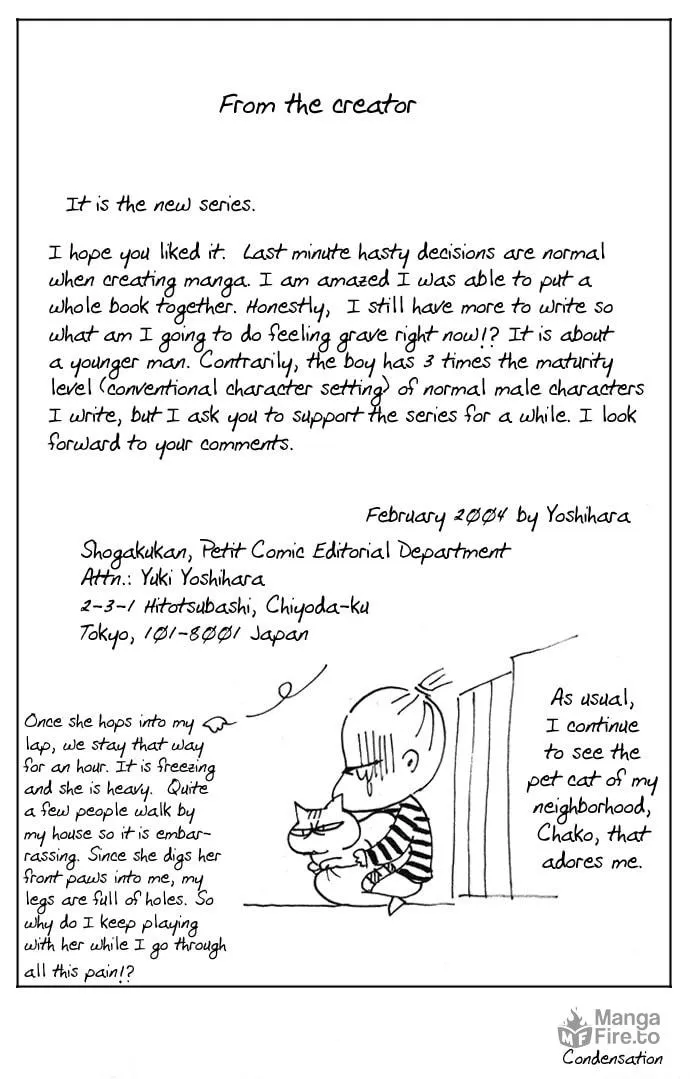 From the creator
It is the new series.
I hope you liked it. Last minute hasty decisions are normal
when creating manga. I am amazed I was able to put a
whole book together. Honestly, I still have more to write so
what am I going to do feeling grave right now!? It is about
a younger man. Contrarily, the boy has 3 times the maturity
level (conventional character setting) of normal male characters
I write, but I ask you to support the series for a while. I look
forward to your comments.
February 2004 by Yoshihara
Shogakukan, Petit Comic Editorial Department
Attn.: Yuki Yoshihara
2-3-1 Hitotsubashi, Chiyoda-ku
Tokyo, 101-8001 Japan
As usual,
I continue
to see the
pet cat of my
neighborhood,
Chako, that
adores me.
Once she hops into my
lap, we stay that way
for an hour. It is freezing
and she is heavy. Quite
a few people walk by
my house so it is embar-
rassing. Since she digs her
front paws into me, my
legs are full of holes. So
why do I keep playing
with her while I go through
all this pain!?
Manga
Fire.to
MF
Condensation